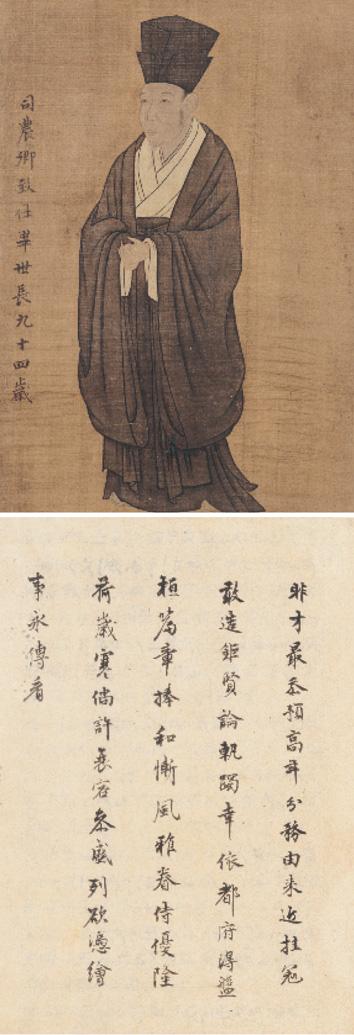 司農卿致仕畢世長九十四歲
非才最忝預高年分務由來近挂冠
敢造鉅賢論軌躅幸依都府得盤
桓篇章捧和慚風雅眷待優隆
荷歲寒倘許衰容參盛列欲憑繪
事永傳看